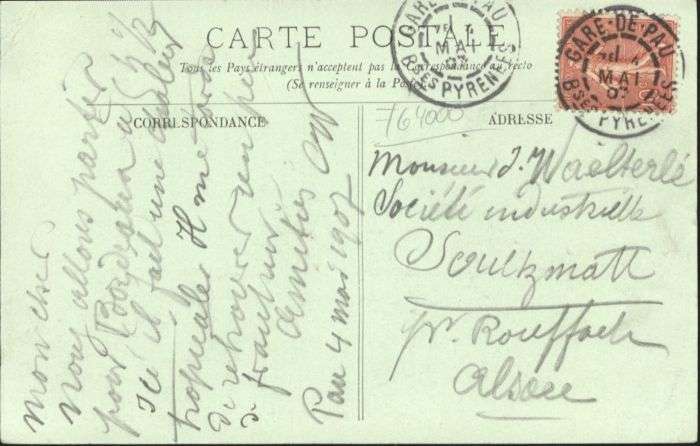 CARTE POSTALE
Tous les Pays étrangers n'acceptent pas la Correspondance au recto
(Se renseigner à la Poste)
CORRESPONDANCE
ADRESSE
764000
GARE-DE-PAU
MAI
BSES PYRENEES
GARE-DE-PAU
4
MAI
BSES PYRENEES
Mon cher
Nous allons partir
pour Bordeaux
Ici il fait une chaleur
tropicale
de retrouver un peu
de fraicheur
Amitiés
Pau 4 mai 1907
Monsieur J. Waelterlé
Société industrielle
Soultzmatt
pr. Rouffach
Alsace